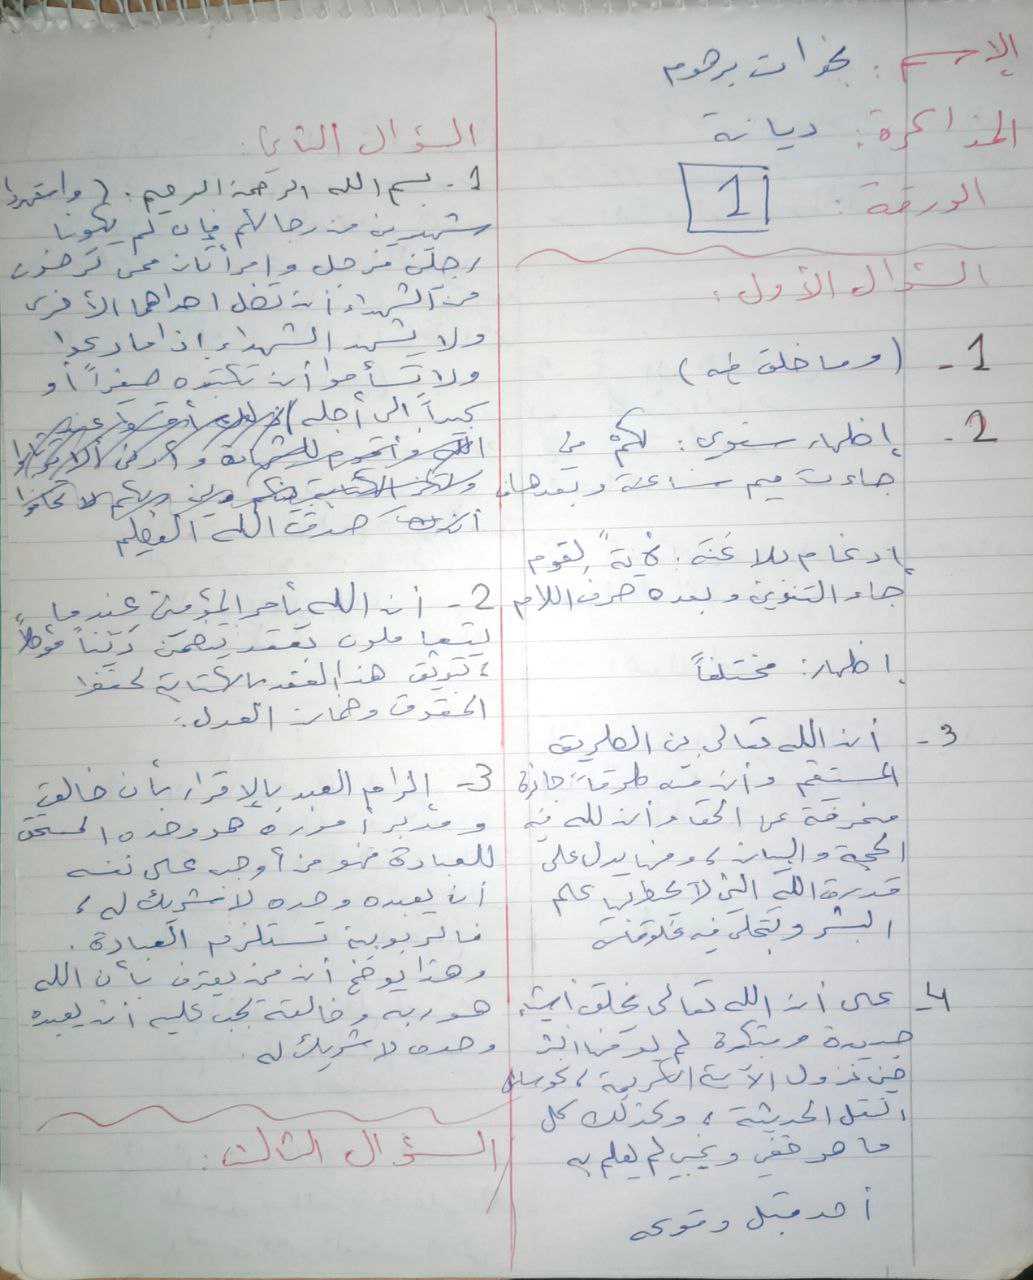 الإسم :
برهوم
المذاكرة : ديانة
الورقة : 1
السؤال الأول :
1 - ( وما خلق )
2 - إظهار : لكم
جاءت ميم ساكنة وبعدها
إدغام بلا غنة : لآيةً لقوم
جاء التنوين وبعده حرف اللام
إظهار : مختلفاً
3 - أن الله تعالى بين الطريق
المستقيم وأن منه طرقات جائرة
منحرفة عن الحق وأن لله فيه
الحجة والبيان ، ومنها يدل على
قدرة الله التي لا علم
البشر وتتجلى فيه مخلوقاته
4 - على أن الله تعالى يخلق أشياء
جديدة ومبتكرة لم
حين نزول الآية الكريمة ، كوسائل
النقل الحديثة ، وكذلك كل
ما هو خفي وغيبي لم يعلم به
أحد قبل وقوعه
السؤال الثاني :
1 - بسم الله الرحمن الرحيم : ( واستشهدوا
شهيدين من رجالكم فإن لم يكونا
رجلين فرجل وامرأتان ممن ترضون
من الشهداء أن تضل احداهما الأخرى
ولا الشهداء إذا ما دعوا
ولا تسأموا أن تكتبوه صغيراً أو
كبيراً إلى أجله )
صدق الله العظيم
2 - أن الله يأمر المؤمنين عندما
يتعاملون بعقد يتضمن ديناً مؤجلاً
، توثيق هذا العقد بالكتابة لحفظ
الحقوق وضمان العدل .
3 - إلزام العبد بالإقرار بأن خالقه
ومدبر أموره هو وحده المستحق
للعبادة فهو من أوجب على نفسه
أن يعبده وحده لا شريك له ،
فالربوبية تستلزم العبادة .
وهذا يوضح أن من يعترف بأن الله
هو ربه وخالقه يجب عليه أن يعبده
وحده لا شريك له .
السؤال الثالث :